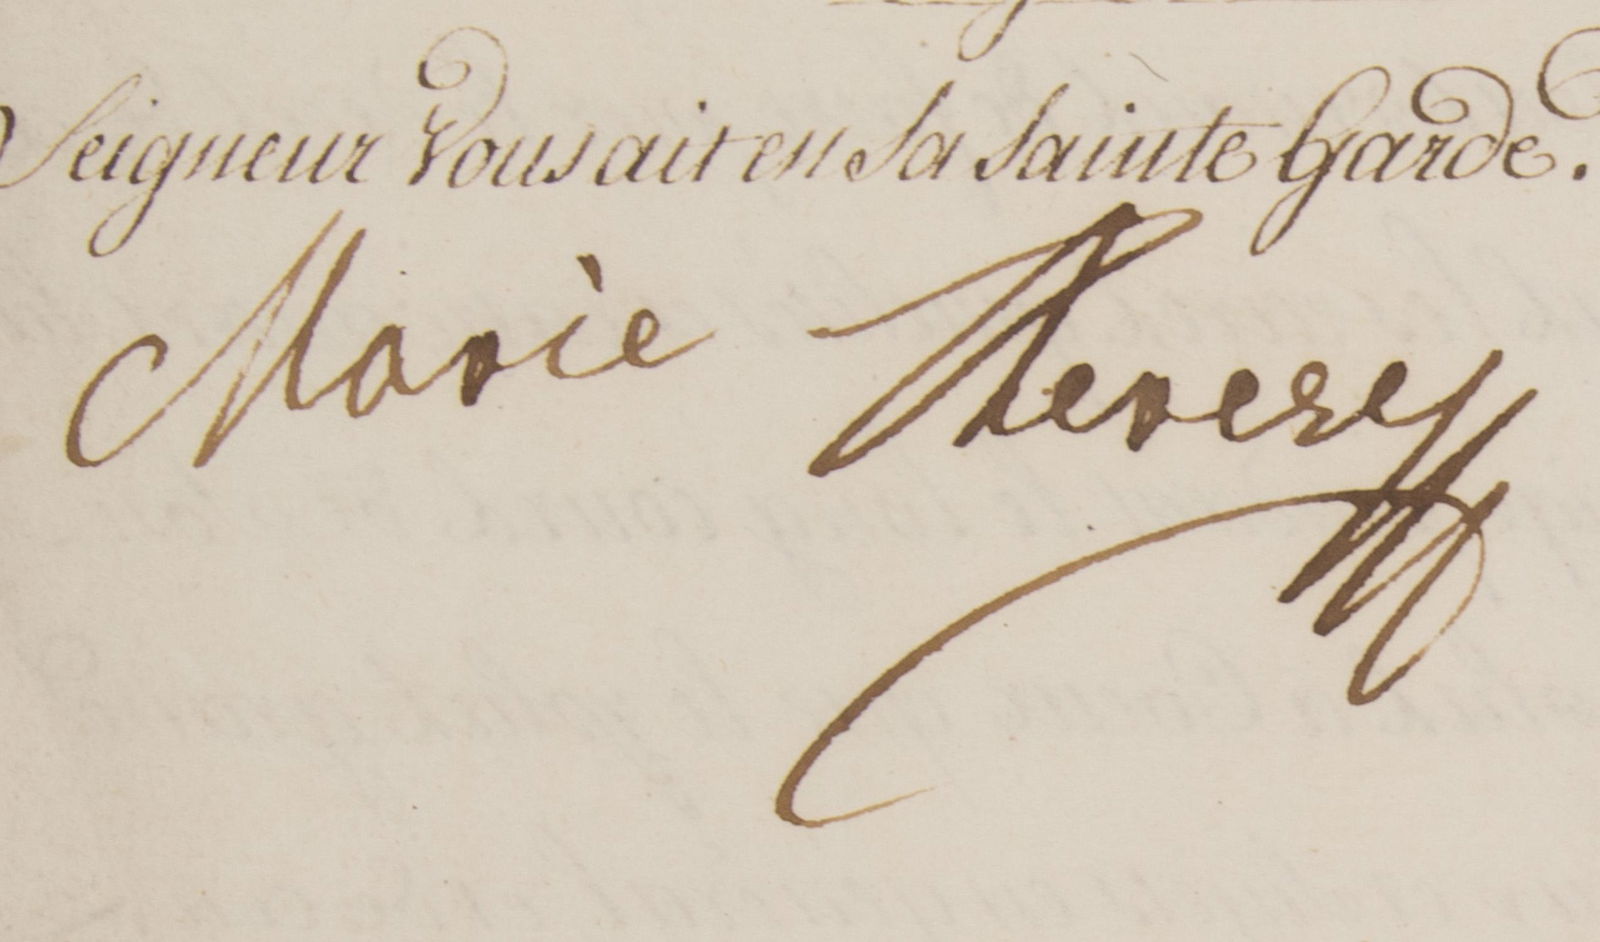 Seigneur Vous ait en sa sainte Garde.
Marie Therese